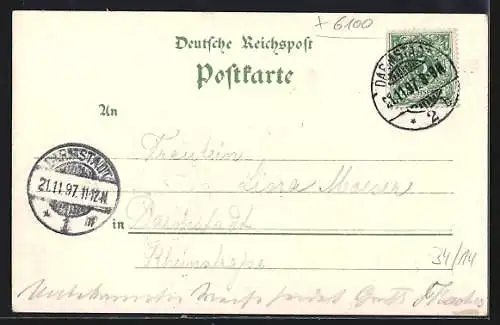 + 6100
Deutsche Reichspost
Postkarte
DARMSTADT
21.11.97. 8-9N.
* 2
An
Fräulein
Lina Moeser
DARMSTADT
21.11.97. 11-12N.
* 1 m
in Darmstadt
Rheinstrasse
34/14
sendet Gruß